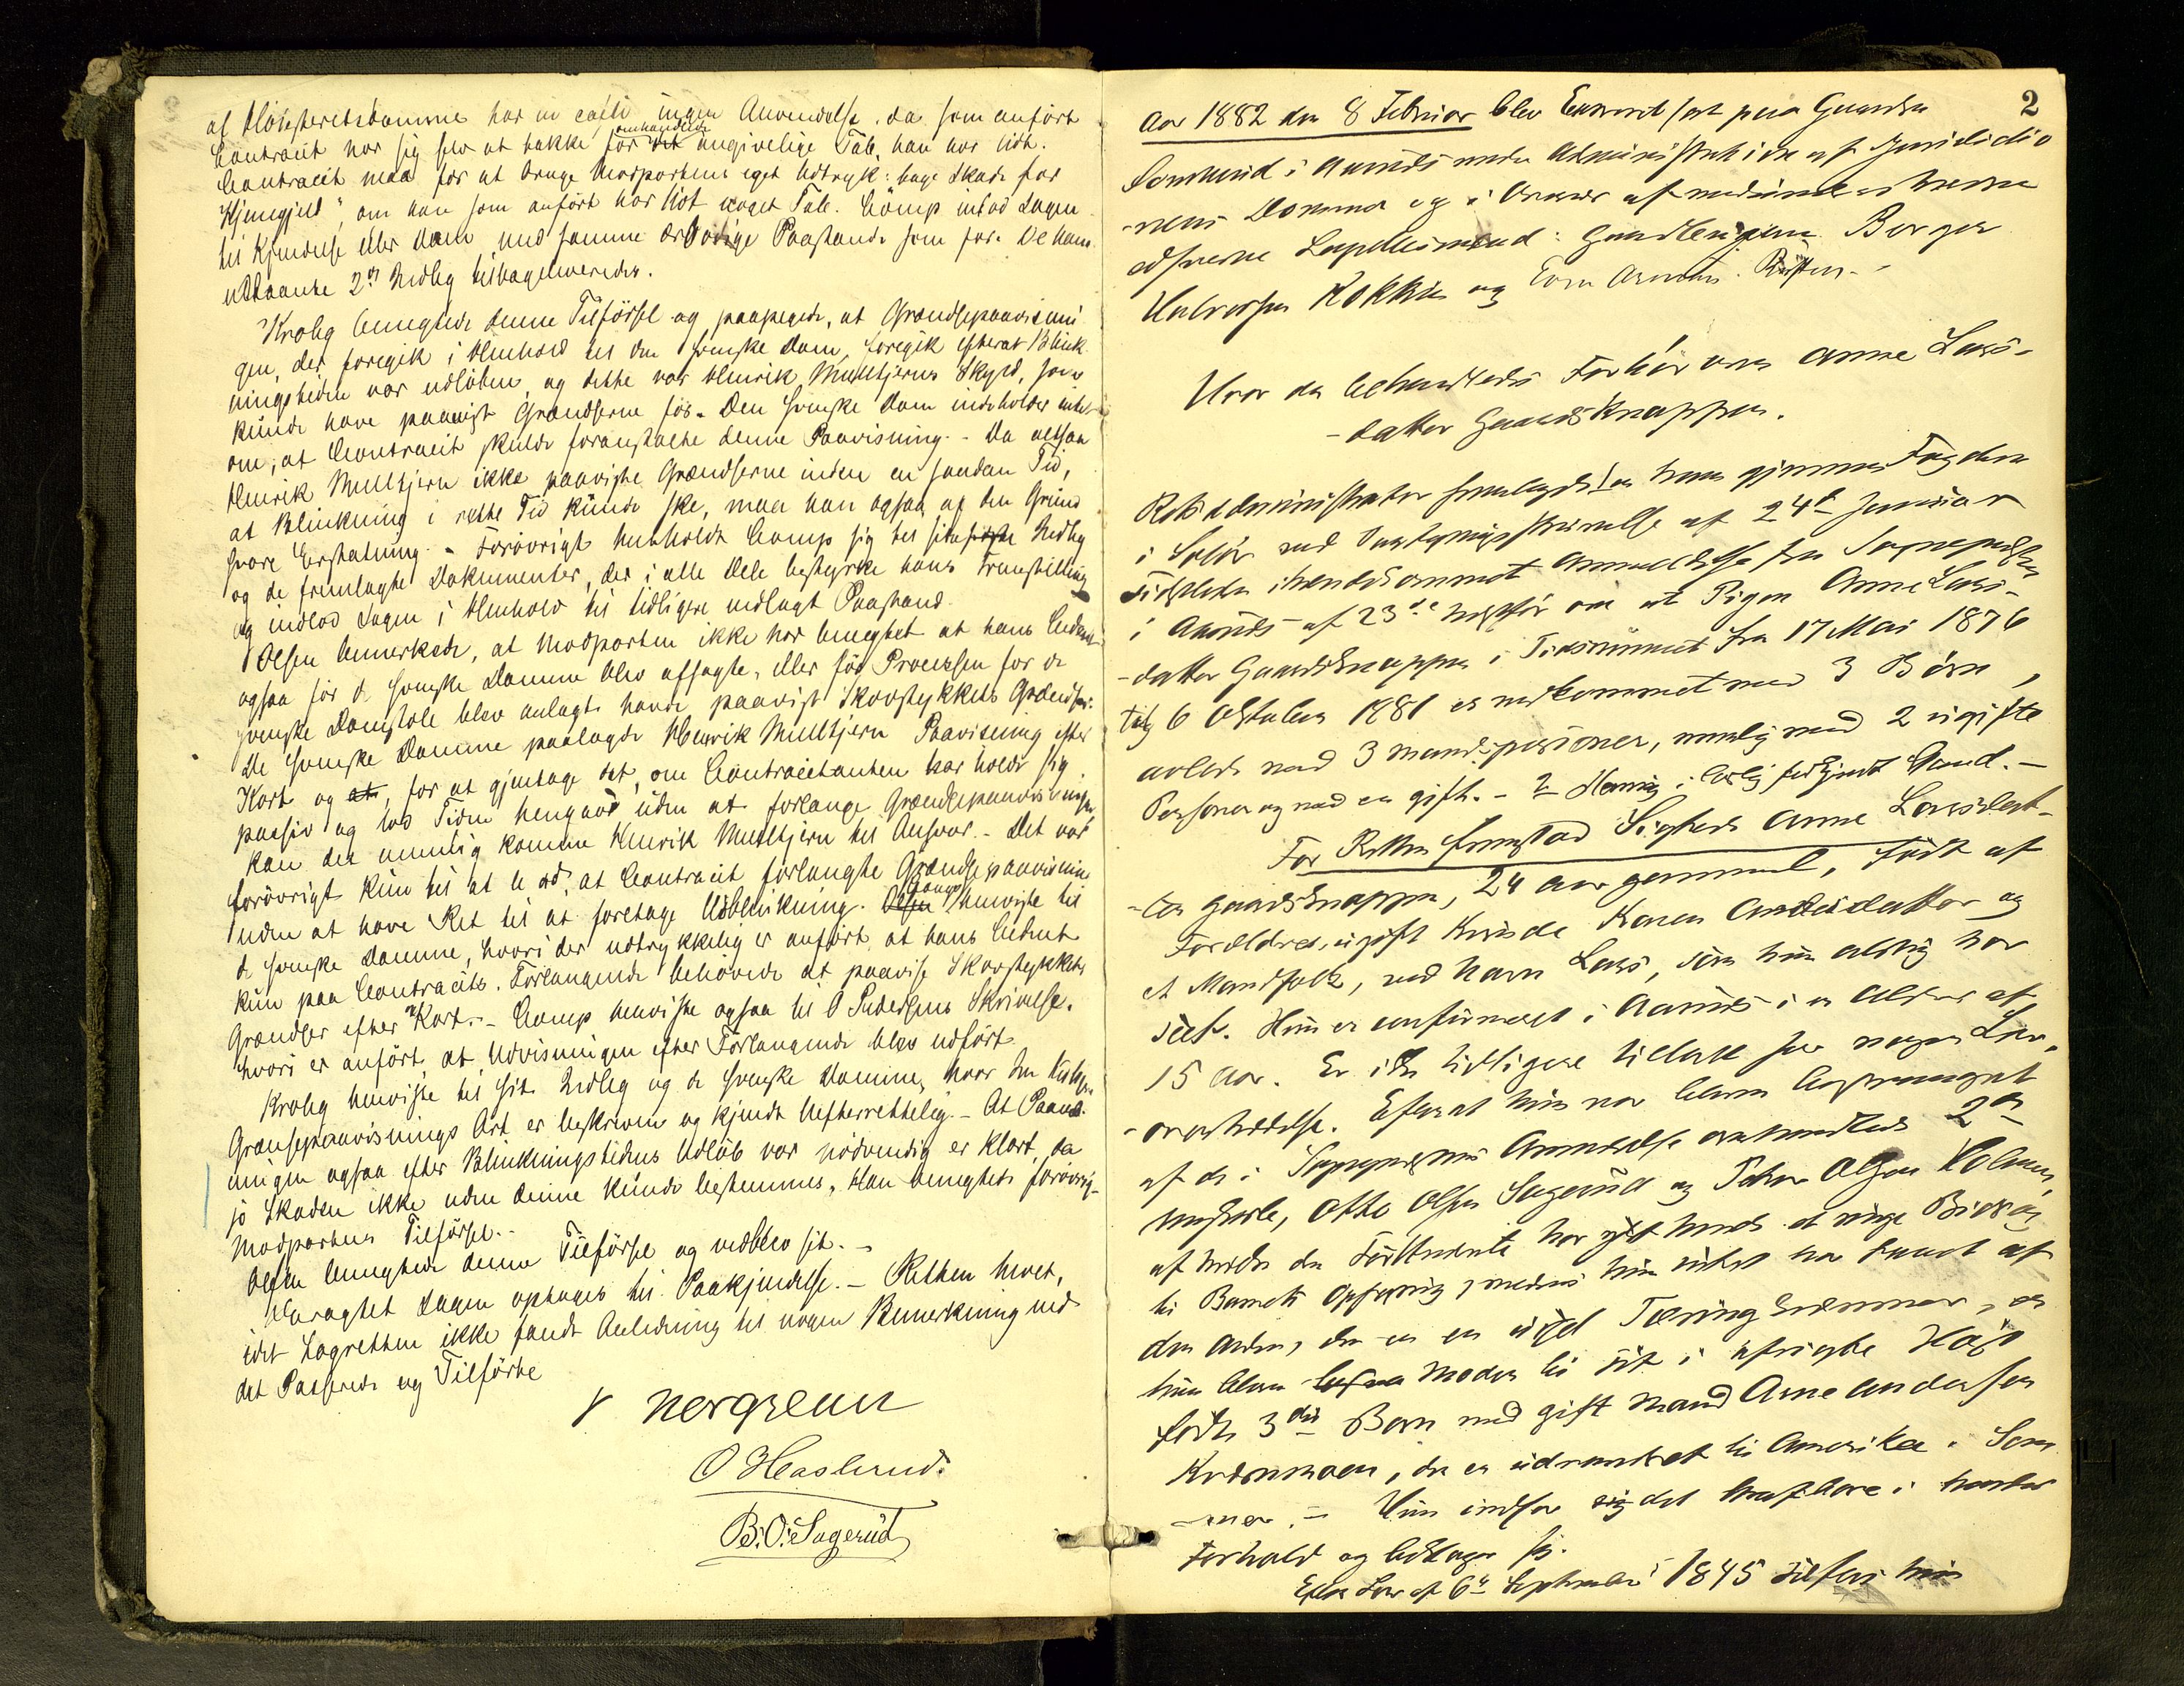 af Höiesteretsdomme har in casu ingen Anvendelse, da som anfört
Contracit har sig selv at takke for det omhandlede angivelige Tab, han har lidt.
Contracit maa for at bruge Modpartens eget Udtryk: "tage Skade for
Hjemgjeld", om han som anfört har lidt noget Tab. Comp indlod Sagen
til Kjendelse eller Dom med samme ærbödige Paastande som för. De ham
udlaante 2de Indlæg tilbageleveredes.
Krohg benegtede denne Tilförsel og paapegede, at Grændsepaavisnin
gen, der foregik i Henhold til den svenske Dom, foregik efterat Blink
ningstiden var udlöben, og dette var Henrik Mulltjerns Skyld, som
kunde have paavist Grændserne för. Den svenske Dom indeholder intet
om, at Contracit skulde foranstalte denne Paavisning. - Da altsaa
Henrik Mulltjern ikke paaviste Grændserne inden en saadan Tid,
at Blinkning i rette Tid kunde ske, maa han ogsaa af den Grund
svare Erstatning. - Forövrigt henholdt Comp sig til sit Indlæg
og de fremlagte Dokumenter, der i alle Dele bestyrke hans Fremstilling
og indlod Sagen i Henhold til tidligere nedlagt Paastand.
Olsen bemerkede, at Modparten ikke har benegtet at hans
ogsaa för de svenske Domme blev afsagte, eller för Processen for de
svenske Domstole blev anlagt havde paavist Skovstykkets Grændser.
De svenske Domme paalagde Henrik Mulltjern Paavisning efter
Kart og at, for at gjentage det, om Contracitanten har holdt sig
passiv og lod Tiden hengaa uden at forlange Grændsepaavisningen,
kan dette umulig komme Henrik Mulltjern til Ansvar. - Det var
forövrigt kun til at le ad, at Contracit forlangte Grændsepaavisning
uden at have Ret til at foretage Udblinkning. Olsen Comp henviste til
de svenske Domme, hvori der udtrykkelig er anfört at hans
kun paa Contracits Forlangende behövede at paavise Skovstykkets
Grændser efter Kart. - Comp henviste ogsaa til O Pedersens Skrivelse,
hvori er anfört, at Udvisningen efter Forlangende blev udfört.
Krohg henviste til sit Indlæg og de svenske Domme, hvor den
Grænsepaavisnings Art er beskreven og kjendt uefterrettelig. - At Paavis-
ningen ogsaa efter Blinkningstidens Udlöb var nödvendig er klart, da
jo Skaden ikke uden denne kunde bestemmes. Han benegtede forövrig-
Modpartens Tilförsel. -
Olsen benegtede denne Tilförsel og vedblev sit. -
Paragtet Sagen optages til Paakjendelse. - Retten hevet,
idet Lagretten ikke fandt Anledning til nogen Bemerkning ved
det Passerede og Tilförte
O Haslund.
B. O. Sagerud
2
Aar 1882 den 8 Februar blev Extraret sat paa Gaarden
Sormund i Aasnes under Administration af Jurisdictio
-nens Dommer og i Overvær af
edsvorne Laugrettesmænd: Gaardbrugerne Berger
Halvorsen Kokkin og Even Arnesen.
Hvor da behandledes Forhör over Anne Lars-
-datter Gaardsknappen.
Retsadministrator fremlagde en ham gjennem Fogden
i Solör med Paategningsskrivelse af 24de Januar
sidstleden ihændekommet Anmeldelse fra Sognepresten
i Aasnes af 23de næstför om at Pigen Anne Lars-
-datter Gaardsknappen i Tidsrummet fra 17 Mai 1876
til 6 Oktober 1881 er nedkommet med 3 Börn,
avlede med 3 Mandspersoner, nemlig med 2 ugifte
Personer og med en gift. -
For Retten fremstod Sigtede Anne Larsdat-
-ter Gaardsknappen, 24 Aar gammel, födt af
Forældre, ugift Kvinde Karen Andersdatter og
et Mandfolk, ved Navn Lars, som hun aldrig har
seet. Hun er confirmeret i Aasnes i en Alder af
15 Aar. Er ikke tidligere tiltalt for nogen Lov-
-overtrædelse. Efterat hun var bleven besvangret
af de i Sognepresten's Anmeldelse omhandlede 2de
ungkarle, Otto Olsen Sagerud og Peter Olsen Holmen,
af hvilke den Förstnevnte har ydet hende et ringe Bidrag
til Barnets Opfostring, medens hun intet har faaet af
den anden, der er en usel Tæring, er
hun bleven Moder til sit i afvigte Höst
födte 3die Barn med gift Mand Arne Andersen
, der er udvandret til Amerika. Som
Hun indser det strafbare i hendes
Forhold og beklager sig.
Efter Lov af 6te September 1845 hun